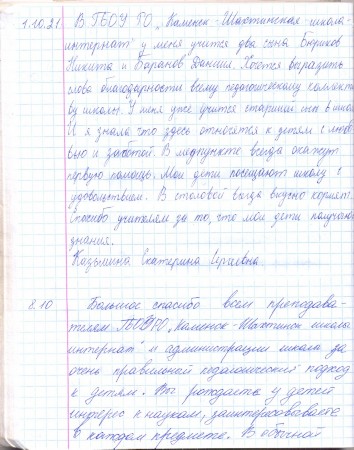 1.10.21. В ГБОУ РО „Каменск-Шахтинская школа-
интернат" у меня учится два сына Бюриков
Никита и Баранов Даниил. Хочется выразить
слова благодарности всему педагогическому коллекти
ву школы. У меня уже учится старший сын в школе
И я знала что здесь относятся к детям с любо
вью и заботой. В медпункте всегда окажут
первую помощь. Мои дети посещают школу с
удовольствием. В столовой всегда вкусно кормят.
Спасибо учителям за то, что мои дети получают
знания.
Казьмина Екатерина
8.10 Большое спасибо всем преподава-
телям ГБОУ РО „Каменск-Шахтинск школа
интернат" и администрации школы за
очень правильный педагогический подход
к детям. Вы рождаете у детей
интерес к наукам, заинтересовываете
в каждом предмете. В обычной